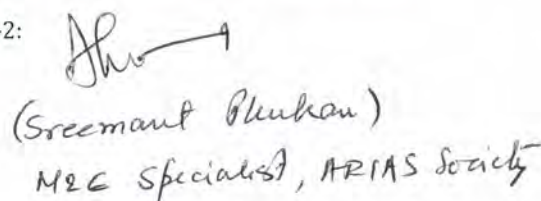 2:
(Sreemant Phukan)
M&E Specialist, ARIAS Society